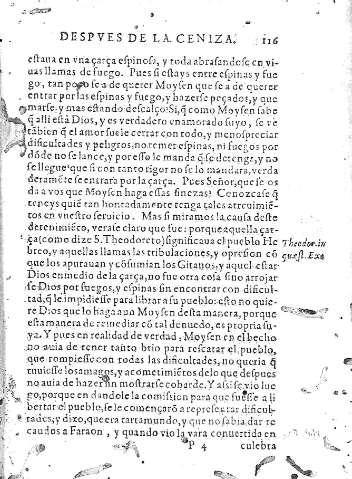 DESPVES DE LA CENIZA. 116
estaua en vna çarça espinosa, y toda abrasandose en vi-
uas llamas de fuego. Pues si estays entre espinas y fue
go, tan poco se a de querer Moysen que se a de querer
entrar por las espinas y fuego, y hazerse peçados, y que
marse, y mas estando descalço: Si, q̃ como Moysen sabe
q̃ alli está Dios, y es verdadero enamorado suyo, se vé
tãbien q̃ el amor suele cerrar con todo, y menospreciar
dificultades y peligros, no temer espinas, ni fuegos por
dõde no se lance, y por esso le manda q̃ se detenga, y no
se llegue: que si con tanto rigor no se lo mandara, verda
deramẽte se entrara por la çarça. Pues Señor, que se os
da a vos que Moysen haga essas finezas? Conozcase q̃
teneys quiẽ tan hontadamente tenga tales atreuimiẽ-
tos en vuestro seruicio. Mas si miramos la causa deste
detenimiẽto, verase claro que fue: porque aquella çar-
ça (como dize S. Theodoreto) significaua el pueblo He
breo, y aquellas llamas las tribulaciones, y opresion cõ
que los apurauan y cõsumian los Gitanos, y aquel estar
Dios en medio de la çarça, no fue otra cosa sino arrojar
se Dios por fuegos, y espinas sin encontrar con dificul-
tad, q̃ le impidiesse para librar a su pueblo: esto no quie
re Dios que lo haga aun Moysen desta manera, porque
esta manera de remediar cõ tal denuedo, es propria su-
ya. Y pues en realidad de verdad, Moysen en el hecho
no auia de tener tanto brio para rescatar el pueblo,
que rompiesse con todas las dificultades, no queria q̃
tuuiesse losamagos, y acometimiẽtos delo que despues
no auia de hazer sin mostrarse cobarde. Y assi se vio lue
go, porque en dandole la comission para que fuesse a li
bertar el pueblo, se le començarõ a representar dificul-
tades, y dixo, que era tartamundo, y que no sabia dar re
caudos a Faraon, y quando vio la vara conuertida en
P 4 culebra
Theodor. in
quest. Exo